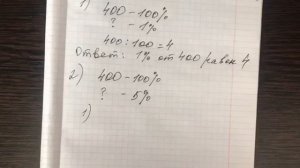 1) 400 - 100%
? - 1%
400 : 100 = 4
Ответ: 1% от 400 равен 4
2) 400 - 100%
? - 5%
1)